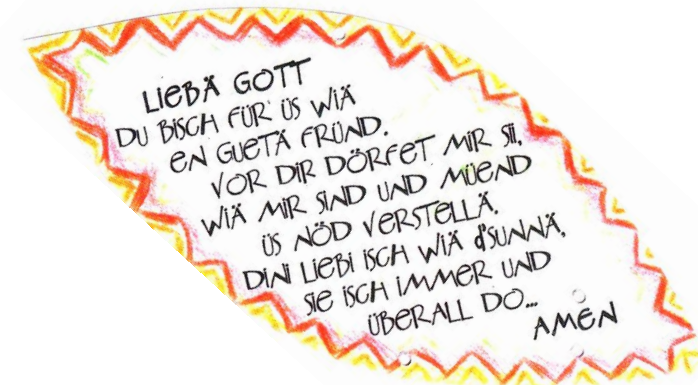 LIEBÄ GOTT
DU BISCH FÜR ÜS WIÄ
EN GUETÄ FRÜND.
VOR DIR DÖRFET MIR SII,
WIÄ MIR SIND UND MÜEND
ÜS NÖD VERSTELLÄ.
DINI LIEBI ISCH WIÄ d'SUNNÄ,
SIE ISCH IMMER UND
ÜBERALL DO...
AMEN